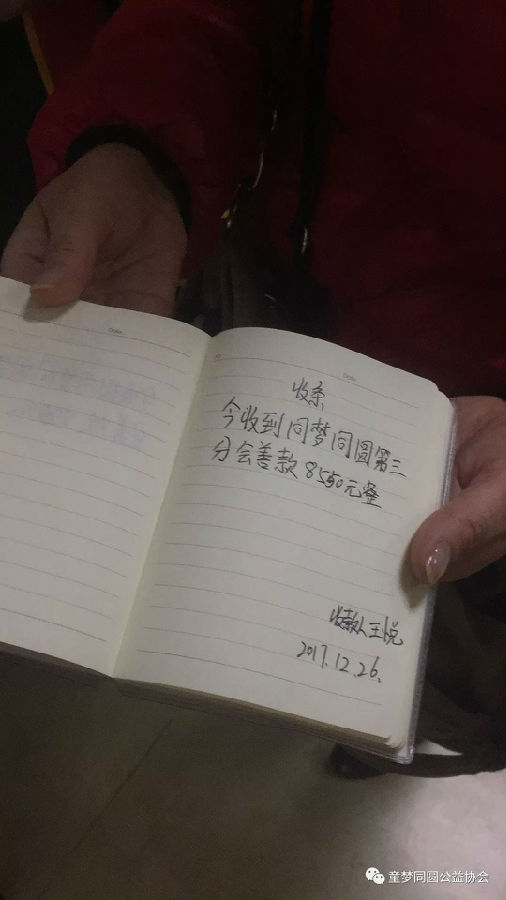 Date
Date
收条
今收到同梦同圆第三
分会善款8550元整
收款人王悦
2017.12.26.
童梦同圆公益协会